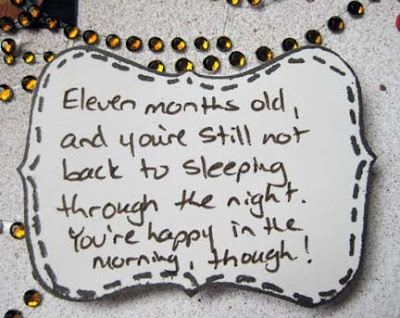 Eleven months old,
and you're still not
back to sleeping
through the night.
You're happy in the
morning, though!